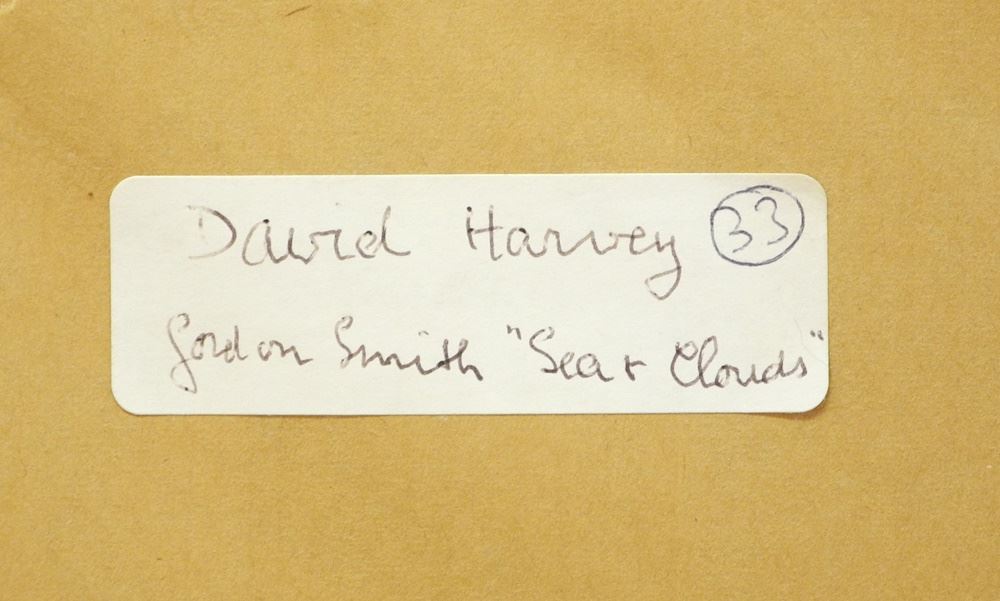 David Harvey 33
Gordon Smith "Sea + Clouds"